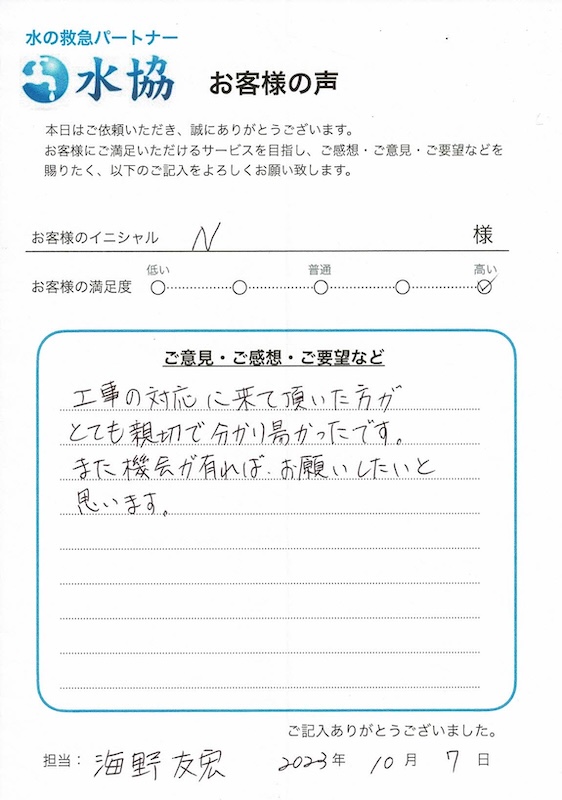 水の救急パートナー
水協 お客様の声
本日はご依頼いただき、誠にありがとうございます。
お客様にご満足いただけるサービスを目指し、ご感想・ご意見・ご要望などを
賜りたく、以下のご記入をよろしくお願い致します。
お客様のイニシャル N 様
低い 普通 高い
お客様の満足度
ご意見・ご感想・ご要望など
工事の対応に来て頂いた方が
とても親切で分かり易かったです。
また機会が有れば、お願いしたいと
思います。
ご記入ありがとうございました。
担当: 海野友宏 2023年 10月 7日